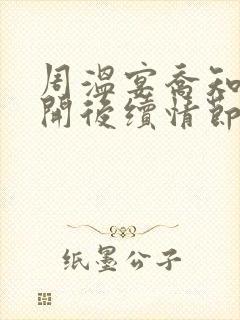 周溫宴喬知
開後續情節
纸墨公子